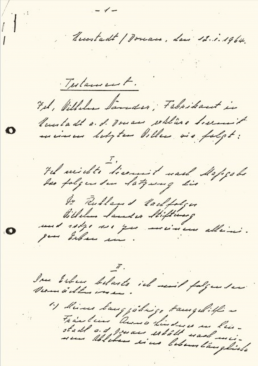 - 1 -
Neustadt/Donau, den 12.1.1960.
Testament.
Ich, Wilhelm Sander, Fabrikant in
Neustadt a.d. Donau erkläre hiermit
meinen letzten Willen wie folgt:
I.
Ich errichte hiermit nach Maßgabe
der folgenden Satzung die
Nachfolger
Wilhelm Sander Stiftung
und setze sie zu meinem allein-
igen Erben ein.
II.
Den Erben belaste ich mit folgenden
Vermächtnissen.
1) Meine langjährige Haushälterin
Fräulein Anna Lindner in Neu-
stadt a.d. Donau erhält nach mei-
nem Ableben eine lebenslängliche